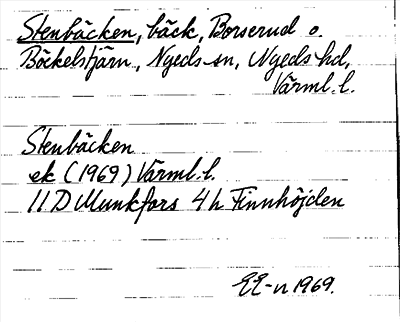 Stenbäcken, bäck, Borserud o.
Böckelstjärn, Nyeds sn, Nyeds hd,
Värml. l.
Stenbäcken
ek (1969) Värml. l.
11 D Munkfors 4 h Finnhöjden
EE-n 1969.